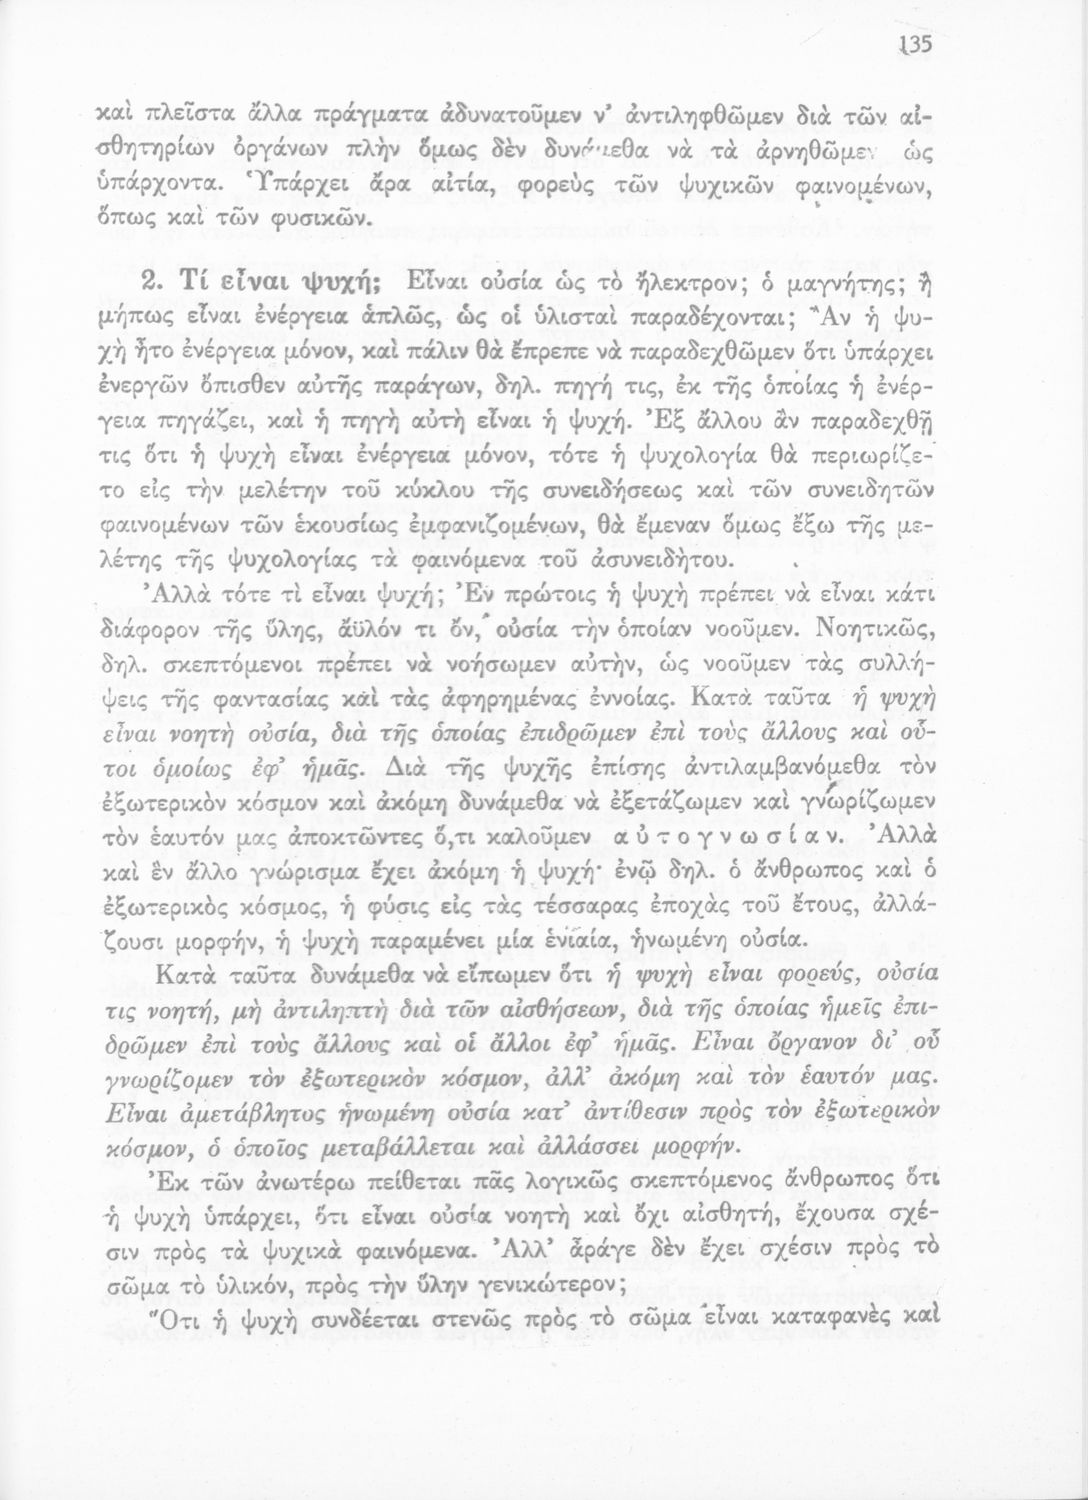 135
καὶ πλεῖστα ἄλλα πράγματα ἀδυνατοῦμεν ν’ ἀντιληφθῶμεν διὰ τῶν αἰ-
σθητηρίων ὀργάνων πλὴν ὅμως δὲν δυνάμεθα νὰ τὰ ἀρνηθῶμεν ὡς
ὑπάρχοντα. Ὑπάρχει ἄρα αἰτία, φορεὺς τῶν ψυχικῶν φαινομένων,
ὅπως καὶ τῶν φυσικῶν.
2. Τί εἶναι ψυχή; Εἶναι οὐσία ὡς τὸ ἤλεκτρον; ὁ μαγνήτης; ἢ
μήπως εἶναι ἐνέργεια ἁπλῶς, ὡς οἱ ὑλισταὶ παραδέχονται; Ἂν ἡ ψυ-
χὴ ἦτο ἐνέργεια μόνον, καὶ πάλιν θὰ ἔπρεπε νὰ παραδεχθῶμεν ὅτι ὑπάρχει
ἐνεργῶν ὄπισθεν αὐτῆς παράγων, δηλ. πηγή τις, ἐκ τῆς ὁποίας ἡ ἐνέρ-
γεια πηγάζει, καὶ ἡ πηγὴ αὐτὴ εἶναι ἡ ψυχή. Ἐξ ἄλλου ἂν παραδεχθῇ
τις ὅτι ἡ ψυχὴ εἶναι ἐνέργεια μόνον, τότε ἡ ψυχολογία θὰ περιωρίζε-
το εἰς τὴν μελέτην τοῦ κύκλου τῆς συνειδήσεως καὶ τῶν συνειδητῶν
φαινομένων τῶν ἑκουσίως ἐμφανιζομένων, θὰ ἔμεναν ὅμως ἔξω τῆς με-
λέτης τῆς ψυχολογίας τὰ φαινόμενα τοῦ ἀσυνειδήτου.
Ἀλλὰ τότε τὶ εἶναι ψυχή; Ἐν πρώτοις ἡ ψυχὴ πρέπει νὰ εἶναι κάτι
διάφορον τῆς ὕλης, ἄϋλόν τι ὄν, οὐσία τὴν ὁποίαν νοοῦμεν. Νοητικῶς,
δηλ. σκεπτόμενοι πρέπει νὰ νοήσωμεν αὐτήν, ὡς νοοῦμεν τὰς συλλή-
ψεις τῆς φαντασίας καὶ τὰς ἀφηρημένας ἐννοίας. Κατὰ ταῦτα ἡ ψυχὴ
εἶναι νοητὴ οὐσία, διὰ τῆς ὁποίας ἐπιδρῶμεν ἐπὶ τοὺς ἄλλους καὶ οὗ-
τοι ὁμοίως ἐφ’ ἡμᾶς. Διὰ τῆς ψυχῆς ἐπίσης ἀντιλαμβανόμεθα τὸν
ἐξωτερικὸν κόσμον καὶ ἀκόμη δυνάμεθα νὰ ἐξετάζωμεν καὶ γνωρίζωμεν
τὸν ἑαυτόν μας ἀποκτῶντες ὅ,τι καλοῦμεν α ὐ τ ο γ ν ω σ ί α ν. Ἀλλὰ
καὶ ἓν ἄλλο γνώρισμα ἔχει ἀκόμη ἡ ψυχή· ἐνῷ δηλ. ὁ ἄνθρωπος καὶ ὁ
ἐξωτερικὸς κόσμος, ἡ φύσις εἰς τὰς τέσσαρας ἐποχὰς τοῦ ἔτους, ἀλλά-
ζουσι μορφήν, ἡ ψυχὴ παραμένει μία ἑνιαία, ἡνωμένη οὐσία.
Κατὰ ταῦτα δυνάμεθα νὰ εἴπωμεν ὅτι ἡ ψυχὴ εἶναι φορεύς, οὐσία
τις νοητή, μὴ ἀντιληπτὴ διὰ τῶν αἰσθήσεων, διὰ τῆς ὁποίας ἡμεῖς ἐπι-
δρῶμεν ἐπὶ τοὺς ἄλλους καὶ οἱ ἄλλοι ἐφ’ ἡμᾶς. Εἶναι ὄργανον δι’ οὗ
γνωρίζομεν τὸν ἐξωτερικὸν κόσμον, ἀλλ’ ἀκόμη καὶ τὸν ἑαυτόν μας.
Εἶναι ἀμετάβλητος ἡνωμένη οὐσία κατ’ ἀντίθεσιν πρὸς τὸν ἐξωτερικὸν
κόσμον, ὁ ὁποῖος μεταβάλλεται καὶ ἀλλάσσει μορφήν.
Ἐκ τῶν ἀνωτέρω πείθεται πᾶς λογικῶς σκεπτόμενος ἄνθρωπος ὅτι
ἡ ψυχὴ ὑπάρχει, ὅτι εἶναι οὐσία νοητὴ καὶ ὄχι αἰσθητή, ἔχουσα σχέ-
σιν πρὸς τὰ ψυχικὰ φαινόμενα. Ἀλλ’ ἆράγε δὲν ἔχει σχέσιν πρὸς τὸ
σῶμα τὸ ὑλικόν, πρὸς τὴν ὕλην γενικώτερον;
Ὅτι ἡ ψυχὴ συνδέεται στενῶς πρὸς τὸ σῶμα εἶναι καταφανὲς καὶ